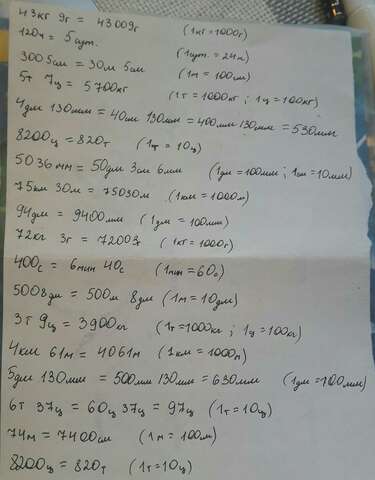 43кг 9г = 43009г (1кг=1000г)
120ч = 5сут. (1сут. = 24ч)
3005см = 30м 5см (1м = 100см)
5т 7ц = 5700кг (1т = 1000кг ; 1ц = 100кг)
4дм 130мм = 40см 130мм = 400мм 130мм = 530мм
8200ц = 820т (1т = 10ц)
5036мм = 50дм 3см 6мм (1дм = 100мм ; 1см = 10мм)
75км 30м = 75030м (1км = 1000м)
94дм = 9400мм (1дм = 100мм)
72кг 3г = 72003г (1кг = 1000г)
400с = 6мин 40с (1мин = 60с)
5008дм = 500м 8дм (1м = 10дм)
3т 9ц = 3900кг (1т = 1000кг ; 1ц = 100кг)
4км 61м = 4061м (1км = 1000м)
5дм 130мм = 500мм 130мм = 630мм (1дм = 100мм)
6т 37ц = 60ц 37ц = 97ц (1т = 10ц)
74м = 7400см (1м = 100см)
8200ц = 820т (1т = 10ц)